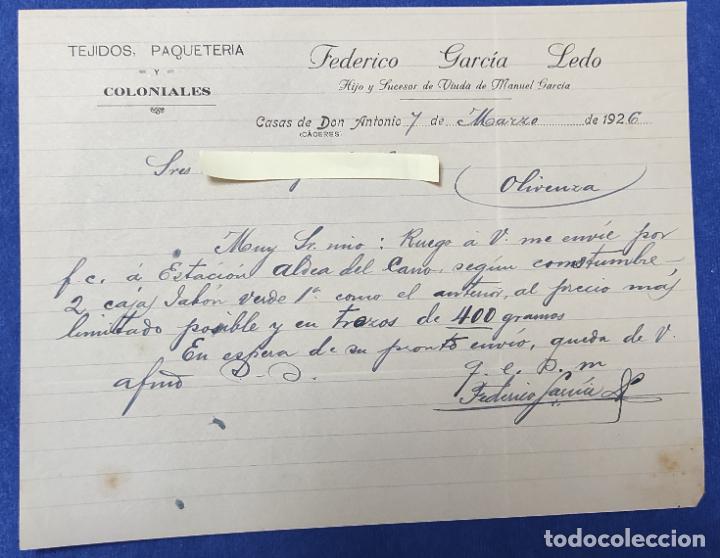 TEJIDOS, PAQUETERIA
Y
COLONIALES
Federico García Ledo
Hijo y Sucesor de Viuda de Manuel García
Casas de Don Antonio 7 de Marzo de 1926
(CÁCERES)
Sres
Olivenza
Muy Sr. mio: Ruego á V. me envíe por
f.c. á Estación Aldea del Cano, según constumbre
2 cajas Jabón verde 1ª como el anterior, al precio más
limitado posible y en trozos de 400 gramos
En espera de su pronto envío, queda de V.
afmo S. S.
q. e. s. m
Federico García L
todocoleccion